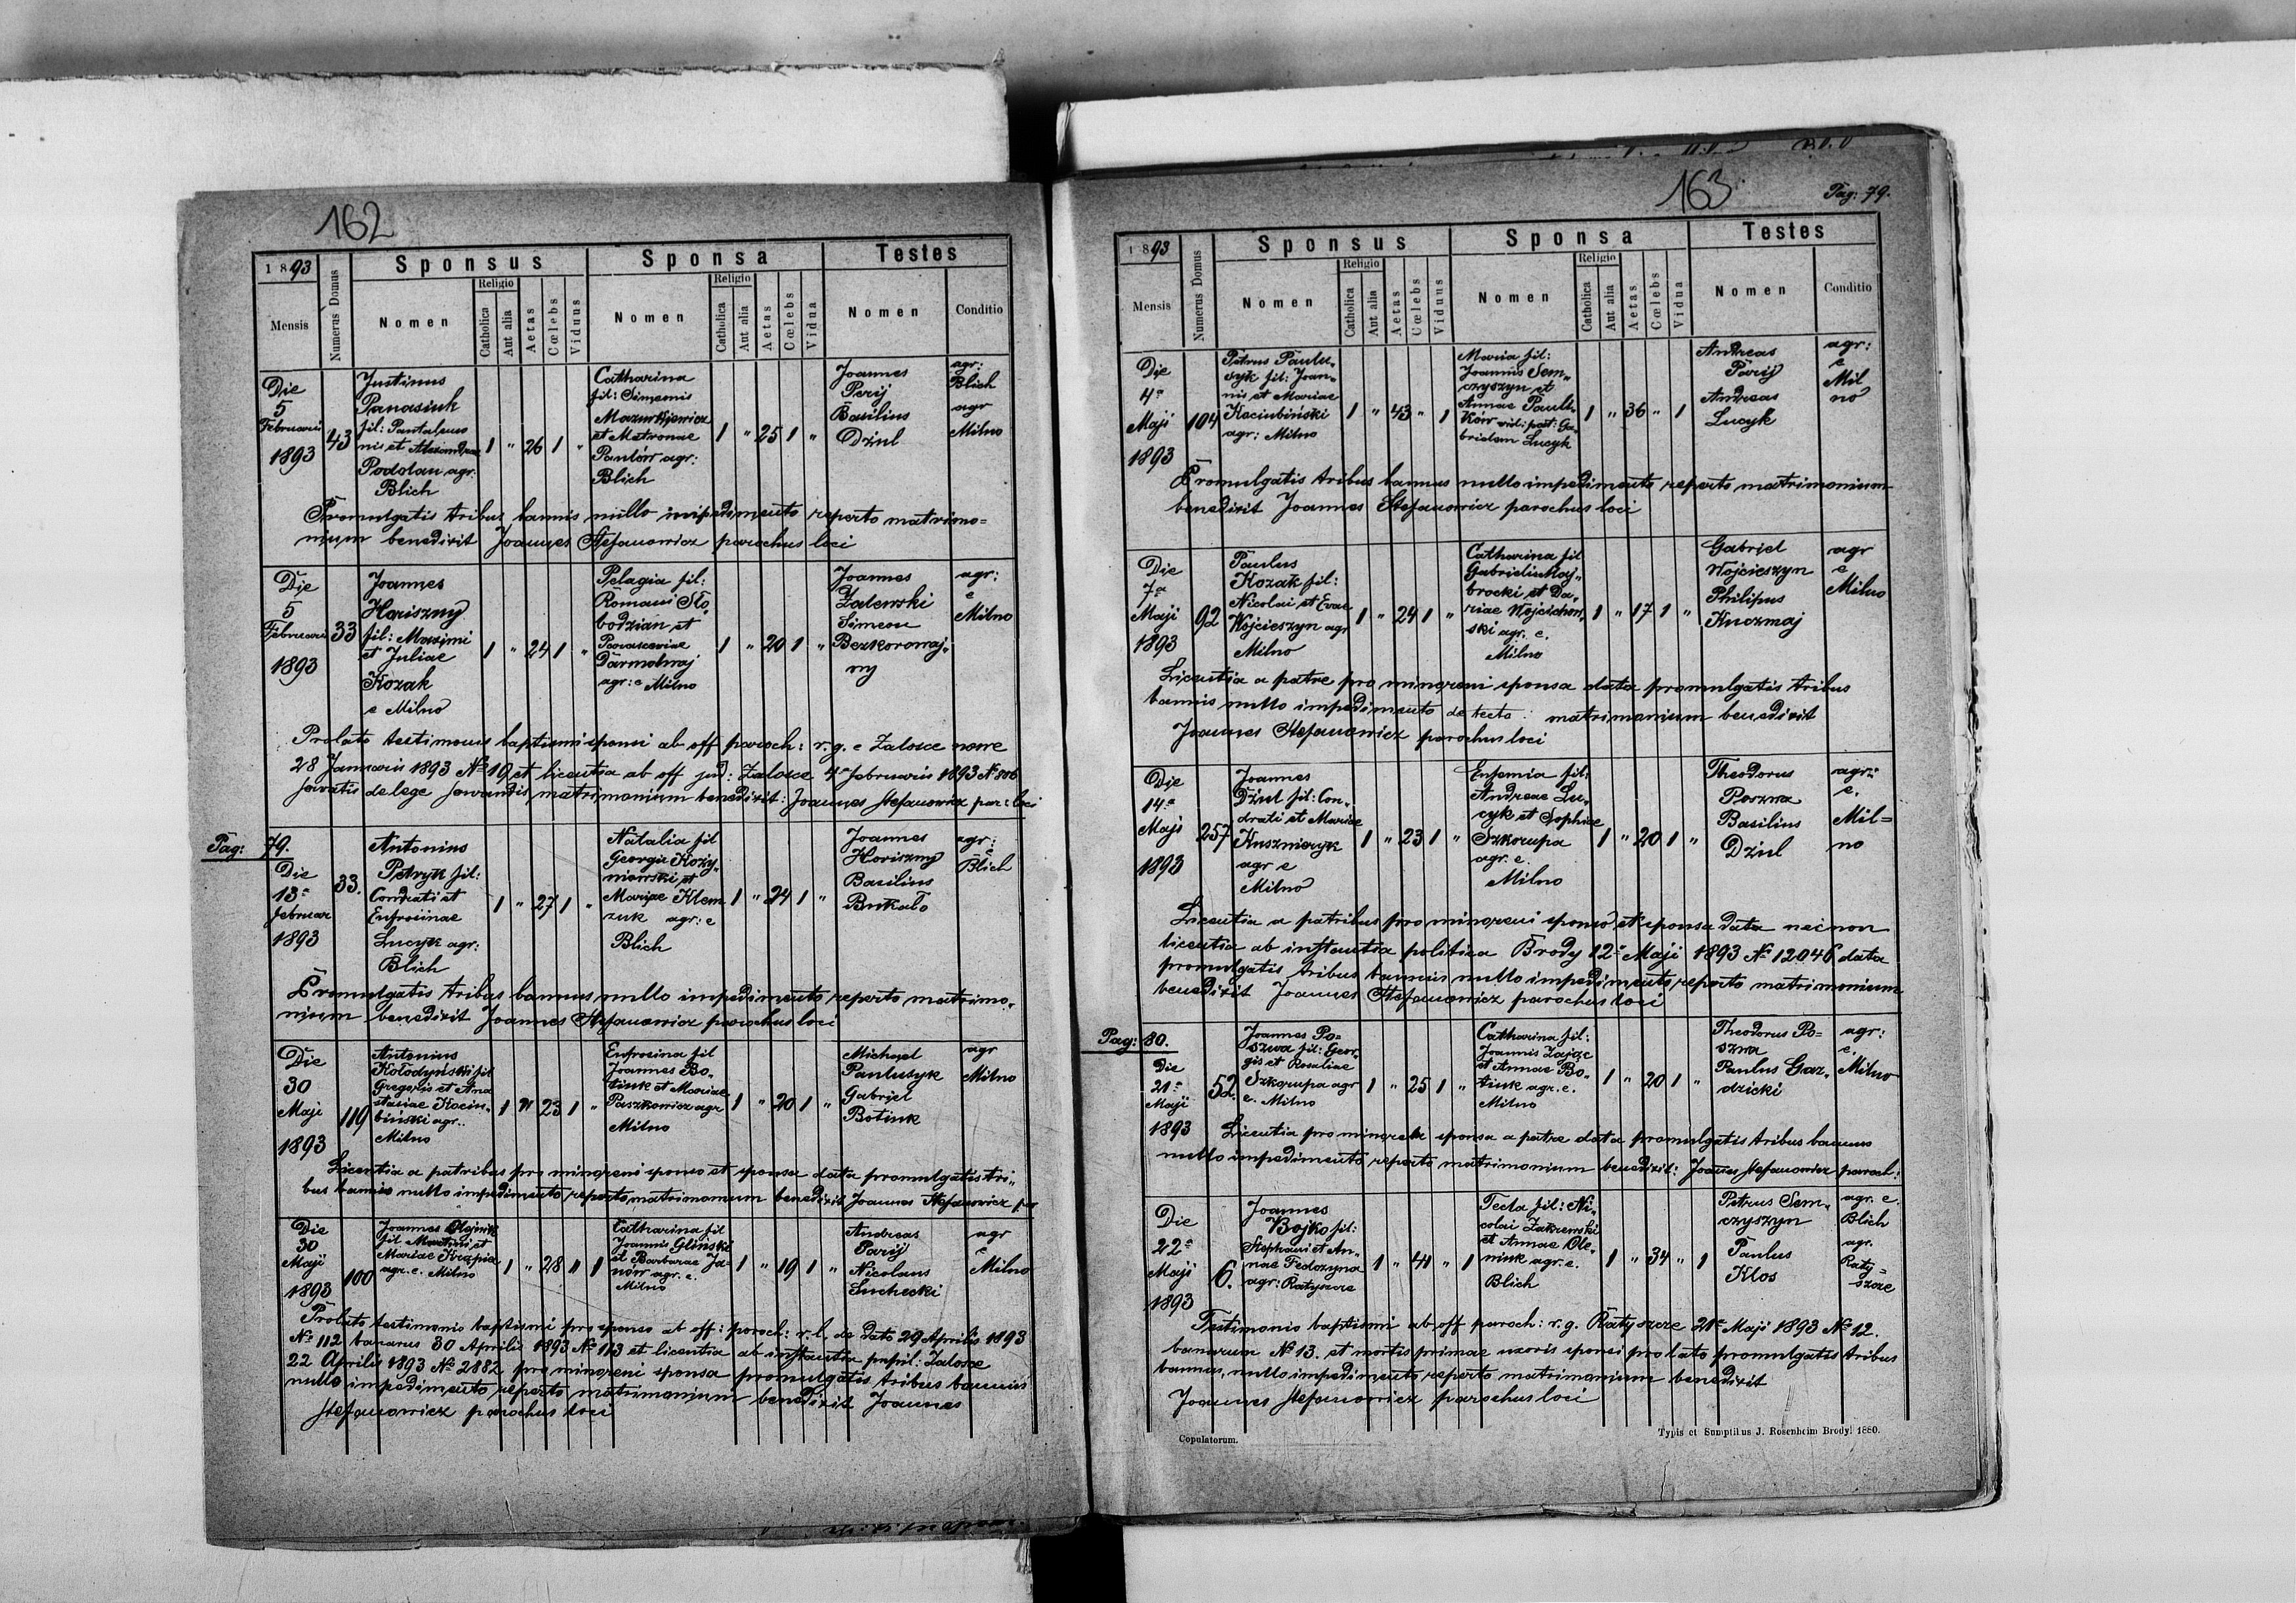 162
1893
Sponsus
Sponsa
Testes
Mensis
Numerus Domus
Nomen
Religio
Catholica
Aut alia
Aetas
Cœlebs
Viduus
Nomen
Religio
Catholica
Aut alia
Aetas
Cœlebs
Vidua
Nomen
Conditio
Die
5
Februarii
1893
43
Justinus
Panasiuk
fil: Pantalemo
nis et Alexandrae
Podolan agr:
Blich
1 " 26 1 "
Catharina
fil: Simeonis
Mazurkiewicz
et Matronae
Pańków agr:
Blich
1 " 25 1 "
Joannes
Perij
Basilius
Dziul
agr:
Blich
agr
Milno
Promulgatis tribus bannis nullo impedimento reperto matrimo=
nium benedixit Joannes Stefanowicz parochus loci
Die
5
Februarii
1893
33
Joannes
Horiszny
fil: Maximi
et Juliae
Kozak
e Milno
1 " 24 1 "
Pelagia fil:
Romani Sło-
bodzian et
Parasceviae
Darmohraj
agr: e Milno
1 " 20 1 "
Joannes
Zalewski
Simeon
Bezkorowaj-
ny
agr:
e
Milno
Prolato testimonio baptismi sponsi ab off paroch: r.g. e Zalosce nowe
28 Januarii 1893 No 10 et licentia ab off jud: Zalosce 4a februarii 1893 No 806
servatis de lege servandis matrimonium benedixit: Joannes Stefanowicz par: loci
Pag: 79.
Die
13a
februar
1893
33.
Antonius
Petryk fil:
Condrati et
Eufrosinae
Lucyk agr:
Blich
1 " 27 1 "
Natalia fil
Georgii Koży-
niowski et
Mariae Klem
zuk agr: e
Blich
1 " 24 1 "
Joannes
Horiszny
Basilius
Bukało
agr:
e
Blich
Promulgatis tribus bannus nullo impedimento reperto matrimo-
nium benedixit Joannes Stefanowicz parochus loci
Die
30
Maji
1893
119
Antonius
Kołodyński fil
Gregorii et Ana
stasiae Kociu-
biński agr..
Milno
1 " 23 1 "
Eufrosina fil
Joannes Bo-
tiuk et Mariae
Paszkowicz agr
Milno
1 " 20 1 "
Michael
Pauluzyk
Gabriel
Botiuk
agr
Milno
Licentia a patribus pro minoreni sponso et sponsa data promulgatis tri-
bus bannis nullo impedimento reperto matrimonium benedixit Joannes Stefanowicz par
Die
30
Maji
1893
100
Joannes Olejnik
fil Martini et
Mariae Krąpia
agr. e. Milno
1 " 28 " 1
Catharina fil
Joannis Gliński
et Barbarae Ja-
nów agr. e.
Milno
1 " 19 1 "
Andreas
Parij
Nicolaus
Suchecki
agr
e
Milno
Prolato testimonio baptismi pro sponso ab off: paroch: r. l. de dato 29 Aprilis 1893
No 112 banarus 30 Aprilis 1893 No 113 et licentia ab instantia pupil: Zalosce
22 Aprilis 1893 No 2182 pro minoreni sponsa promulgatis tribus bannis
nullo impedimento reperto matrimonium benedixit Joannes
Stefanowicz parochus loci
163
Pag: 79.
1893
Sponsus
Sponsa
Testes
Mensis
Numerus Domus
Nomen
Religio
Catholica
Aut alia
Aetas
Cœlebs
Viduus
Nomen
Religio
Catholica
Aut alia
Aetas
Cœlebs
Vidua
Nomen
Conditio
Die
4a
Maji
1893
104
Petrus Paulu-
syk fil: Joan-
nis et Mariae
Kociubiński
agr: Milno
1 " 43 " 1
Maria fil:
Joannis Sem-
czyszyn et
Annae Paul-
ków vid: post: Ga-
brielem Lucyk
1 " 36 " 1
Andreas
Parij
Andreas
Lucyk
agr:
e
Mil
no
Promulgatis tribus bannus nullo impedimento reperto matrimonium
benedixit Joannes Stefanowicz parochus loci
Die
7a
Maji
1893
92
Paulus
Kozak fil:
Nicolai et Evae
Wojcieszyn agr
Milno
1 " 24 1 "
Catharina fil
Gabrielis Zaj-
brocki et Da-
riae Wojcichow-
ski agr. e.
Milno
1 " 17 1 "
Gabriel
Wojcieszyn
Philipus
Kuczmaj
agr
e
Milno
Licentia a patre pro minoreni sponsa data promulgatis tribus
bannis nullo impedimento detecto: matrimonium benedixit
Joannes Stefanowicz parochus loci
Die
14a
Maji
1893
257
Joannes
Dziul fil: Con-
drati et Mariae
Kuszniryk
agr e
Milno
1 " 23 1 "
Eufemia fil:
Andreae Lu-
cyk et Sophiae
Szkorupa
agr. e.
Milno
1 " 20 1 "
Theodorus
Poszwa
Basilius
Dziul
agr:
e.
Mil=
no
Licentia a patribus pro minoreni sponso et sponsa data nec non
licentia ab instantia politica Brody 12a Maji 1893 No 12046 data
promulgatis tribus bannis nullo impedimento reperto matrimonium
benedixit Joannes Stefanowicz parochus loci
Pag: 80.
Die
21a
Maji
1893
52.
Joannes Po-
szwa fil: Geor-
gis et Rosaliae
Szkorupa agr
e. Milno
1 " 25 1 "
Catharina fil:
Joannis Zając
et Annae Bo-
tiuk agr. e.
Milno
1 " 20 1 "
Theodorus Po=
szwa
Paulus Gaz-
dzicki
agr:
e.
Milno
Licentia pro minoreni sponsa a patre data promulgatis tribus bannus
nullo impedimento reperto matrimonium benedixit: Joannes Stefanowicz paroch:
Die
22a
Maji
1893
6.
Joannes
Bojko fil:
Stephani et An-
nae Fedozyna
agr: Ratyszcze
1 " 44 " 1
Tecla fil: Ni-
colai Zakrewski
et Annae Ole-
niuk agr. e.
Blich
1 " 34 " 1
Petrus Sem-
czyszyn
Paulus
Klos
agr. e.
Blich
agr.
Raty=
szcze
Testimonio baptismi ab off paroch: r.g. Ratyszcze 21a Maji 1893 No 12.
banarum No 13. et mortis primae uxoris sponsi prolato promulgatis tribus
bannus, nullo impedimento reperto matrimonium benedixit
Joannes Stefanowicz parochus loci
Copulatorum.
Typis et Sumptibus J. Rosenheim Brody! 1880.